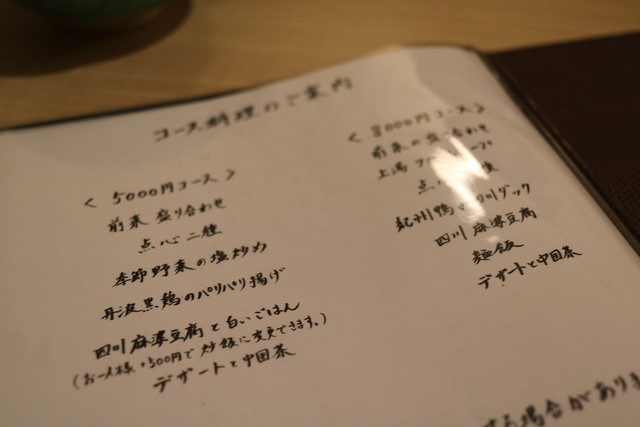 コース料理のご案内
< 5000円コース >
前菜 盛り合わせ
点心二種
季節野菜の塩炒め
丹波黒鶏のパリパリ揚げ
四川麻婆豆腐と白いごはん
(お一人様+500円で炒飯に変更できます。)
デザートと中国茶
< 8000円コース >
前菜の盛り合わせ
上湯 スープ
点
紀州鴨 四川ダック
四川麻婆豆腐
麺飯
デザートと中国茶
する場合があります